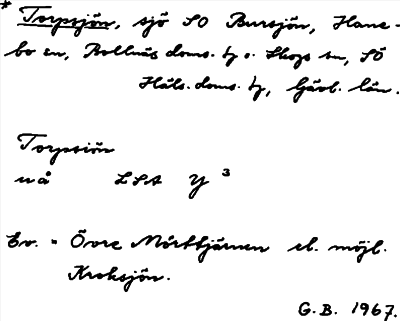 * Torpsjön, sjö SO Bursjön, Hane-
bo sn, Bollnäs doms. tg o. Skogs sn, SÖ
Häls. doms. tg, Gävl. län.
Torpsiön
nå LSA Y 3
Ev. = Övre Mörttjärnen el. möjl.
Kroksjön.
G.B. 1967.